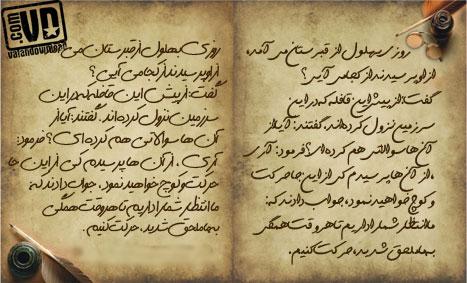 روزی بهلول از قبرستان می آمد،
از او پرسیدند از کجا می آیی؟
گفت: از پیش این قافله که در این
سرزمین نزول کرده اند، گفتند: آیا از
آن ها سوالاتی هم کرده ای؟ فرمود: آری
، از آن ها پرسیدم کی از این جا حرکت
و کوچ خواهید نمود، جواب دادند که:
ما انتظار شما را داریم تا هر وقت همگی
به ما ملحق شدید، حرکت کنیم.
روزی بهلول از قبرستان می
از او پرسیدند از کجا می آیی؟
گفت: از پیش این قافله که در این
سرزمین نزول کرده اند، گفتند: آیا از
آن ها سوالاتی هم کرده ای؟ فرمود:
آری، از آن ها پرسیدم کی از این جا
حرکت و کوچ خواهید نمود، جواب دادند که:
ما انتظار شما را داریم تا هر وقت همگی
به ما ملحق شدید، حرکت کنیم.
VD
.com